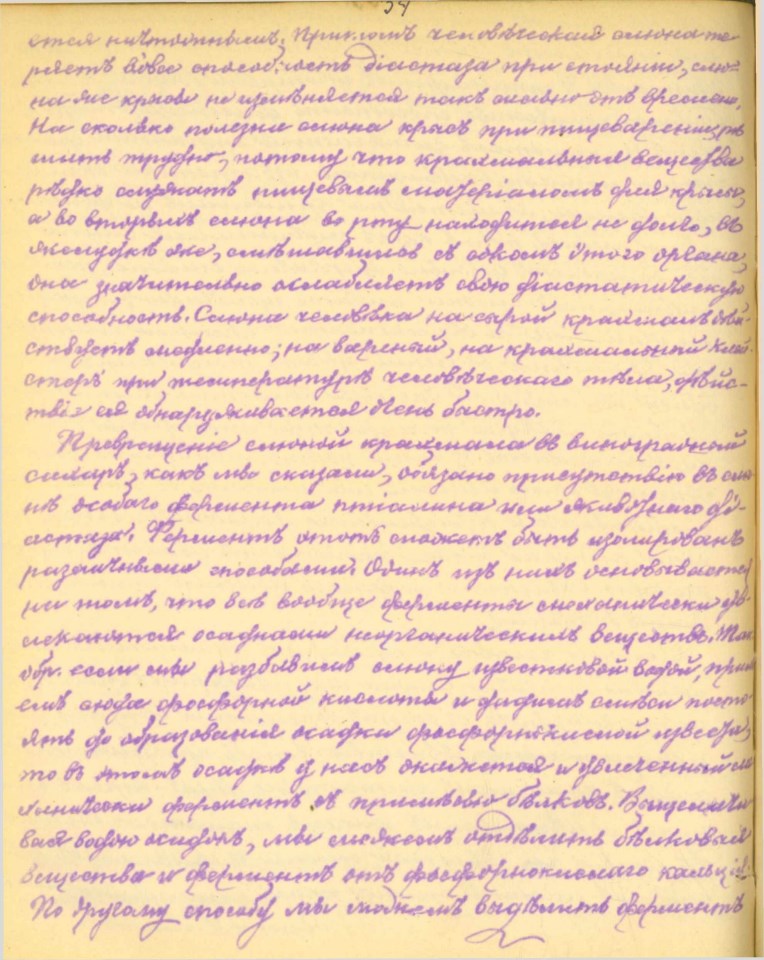 34
ется неточнымъ. Притомъ человѣческая слюна те-
ряетъ вовсе способность діастаза при стояніи, слю-
на же крысы не измѣняется такъ особенно отъ времени.
На сколько полезна слюна крысъ при пищевареніи, рѣ-
шить трудно, потому что крахмальныя вещества
рѣдко служатъ пищевымъ матеріаломъ для крысы,
а во вторыхъ слюна во рту находится не долго, въ
желудкѣ же, смѣшавшись съ сокомъ этого органа,
она значительно ослабляетъ свою діастатическую
способность. Слюна человѣка на сырой крахмалъ дѣй-
ствуетъ медленно; на вареный, на крахмальный клей-
стеръ при температурѣ человѣческаго тѣла, дѣйс-
твіе ея обнаруживается очень быстро.
Превращеніе слюной крахмала въ виноградный
сахаръ, какъ мы сказали, обязано присутствію въ слю-
нѣ особаго фермента птіалина или животнаго ді-
астаза. Ферментъ этотъ можетъ быть изолированъ
различными способами. Одинъ изъ нихъ основывается
на томъ, что всѣ вообще ферменты механически ув-
лекаются осадками неорганическихъ веществъ. Так.
обр. если мы разбавимъ слюну известковой водой, прил-
емъ сюда фосфорной кислоты и дадимъ смѣси посто-
ять до образованія осадка фосфорнокислой извести,
то въ этомъ осадкѣ у насъ окажется и увлеченный ме-
ханически ферментъ съ примѣсью бѣлковъ. Выщелачи-
вая водою осадокъ, мы можемъ отдѣлить бѣлковыя
вещества и ферментъ отъ фосфорнокислаго кальція.
По другому способу мы можемъ выдѣлить ферментъ